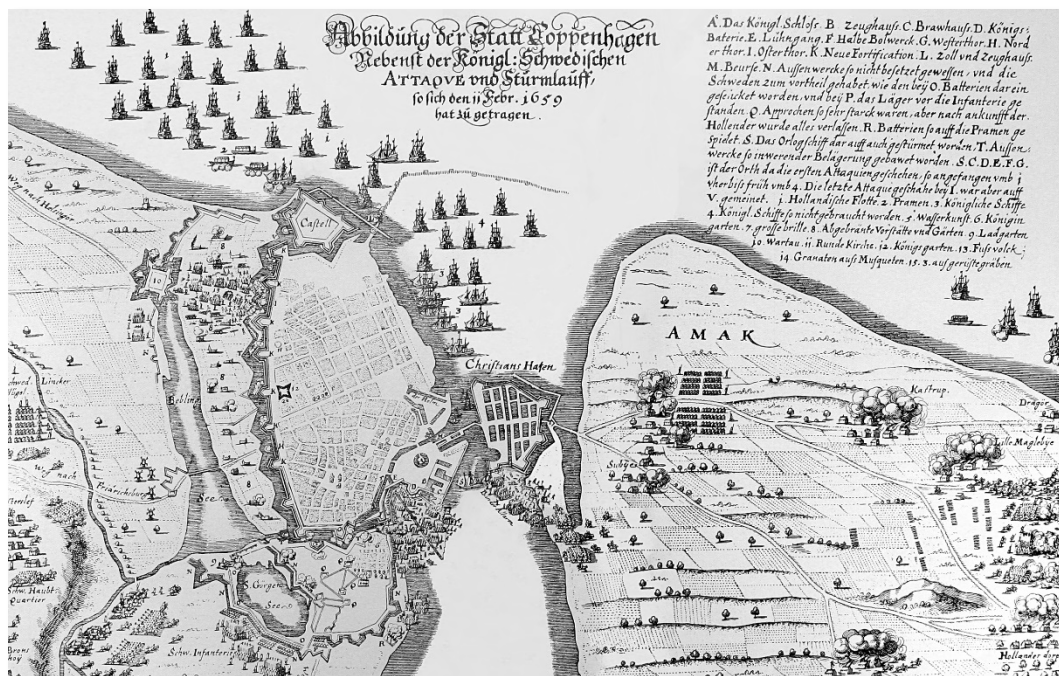 Abbildung der Statt Coppenhagen
Nebenst der Königl: Schwedischen
ATTAQVE vnd Stürmlauff,
so sich den 11 Febr. 1659
hat zu getragen.
A. Das Königl. Schloss. B Zeughauss. C. Brawhauss. D. Königs=
Baterie. E. Lühngang. F Halbe Bolwerck. G. Westerthor. H. Nord
er thor. I. Osterthor. K. Neue Fortification. L. Zoll vnd Zeughauss.
M. Beurse. N. Aussenwercke so nicht besetzet gewessen, vnd die
Schweden zum vortheil gehabt, wie den beÿ O. Batterien darein
geschicket worden, vnd beÿ P. das Läger vor die Infanterie ge
standen. Q. Approchen so sehr starck waren, aber nach ankunfft der
Hollender wurde alles verlassen. R. Batterien so auff die Pramen ge
spielet. S. Das Orlogschiff dar auff auch gestürmet worden. T. Aussen
wercke so in werender Belägerung gebawet worden. S.C.D.E.F.G.
ist der Orth da die ersten Attaquien geschehen, so angefangen vmb 1
vhr bis früh vmb 4. Die letzte Attaque geschahe beÿ I. war aber auff
V. gemeinet. 1. Holländische Flotte. 2. Pramen. 3. Königliche Schiffe
4. Königl. Schiffe so nicht gebraucht worden. 5. Wasserkunst. 6. Königin
garten. 7. grosse brille. 8. Abgebrante Vorstätte vnd Gärten. 9. Ladgarten
10. Wartau. 11. Runde Kirche. 12. Königs garten. 13. Fuss volck.
14. Granaten auss Musqueten. 15. 3. aufgerüste gräben.
Castell
AMAK
Christians Hafen
Kastrup.
Dragör
Lille Maglebÿe
Schwed. Lincker
flügel
Pebling
See
Friedrichsburg
nach
Subÿe
Schw. Haubt
Quartier
Görgen
See
Schw. Infanterie
Brons
hoÿ
Hollander dorp